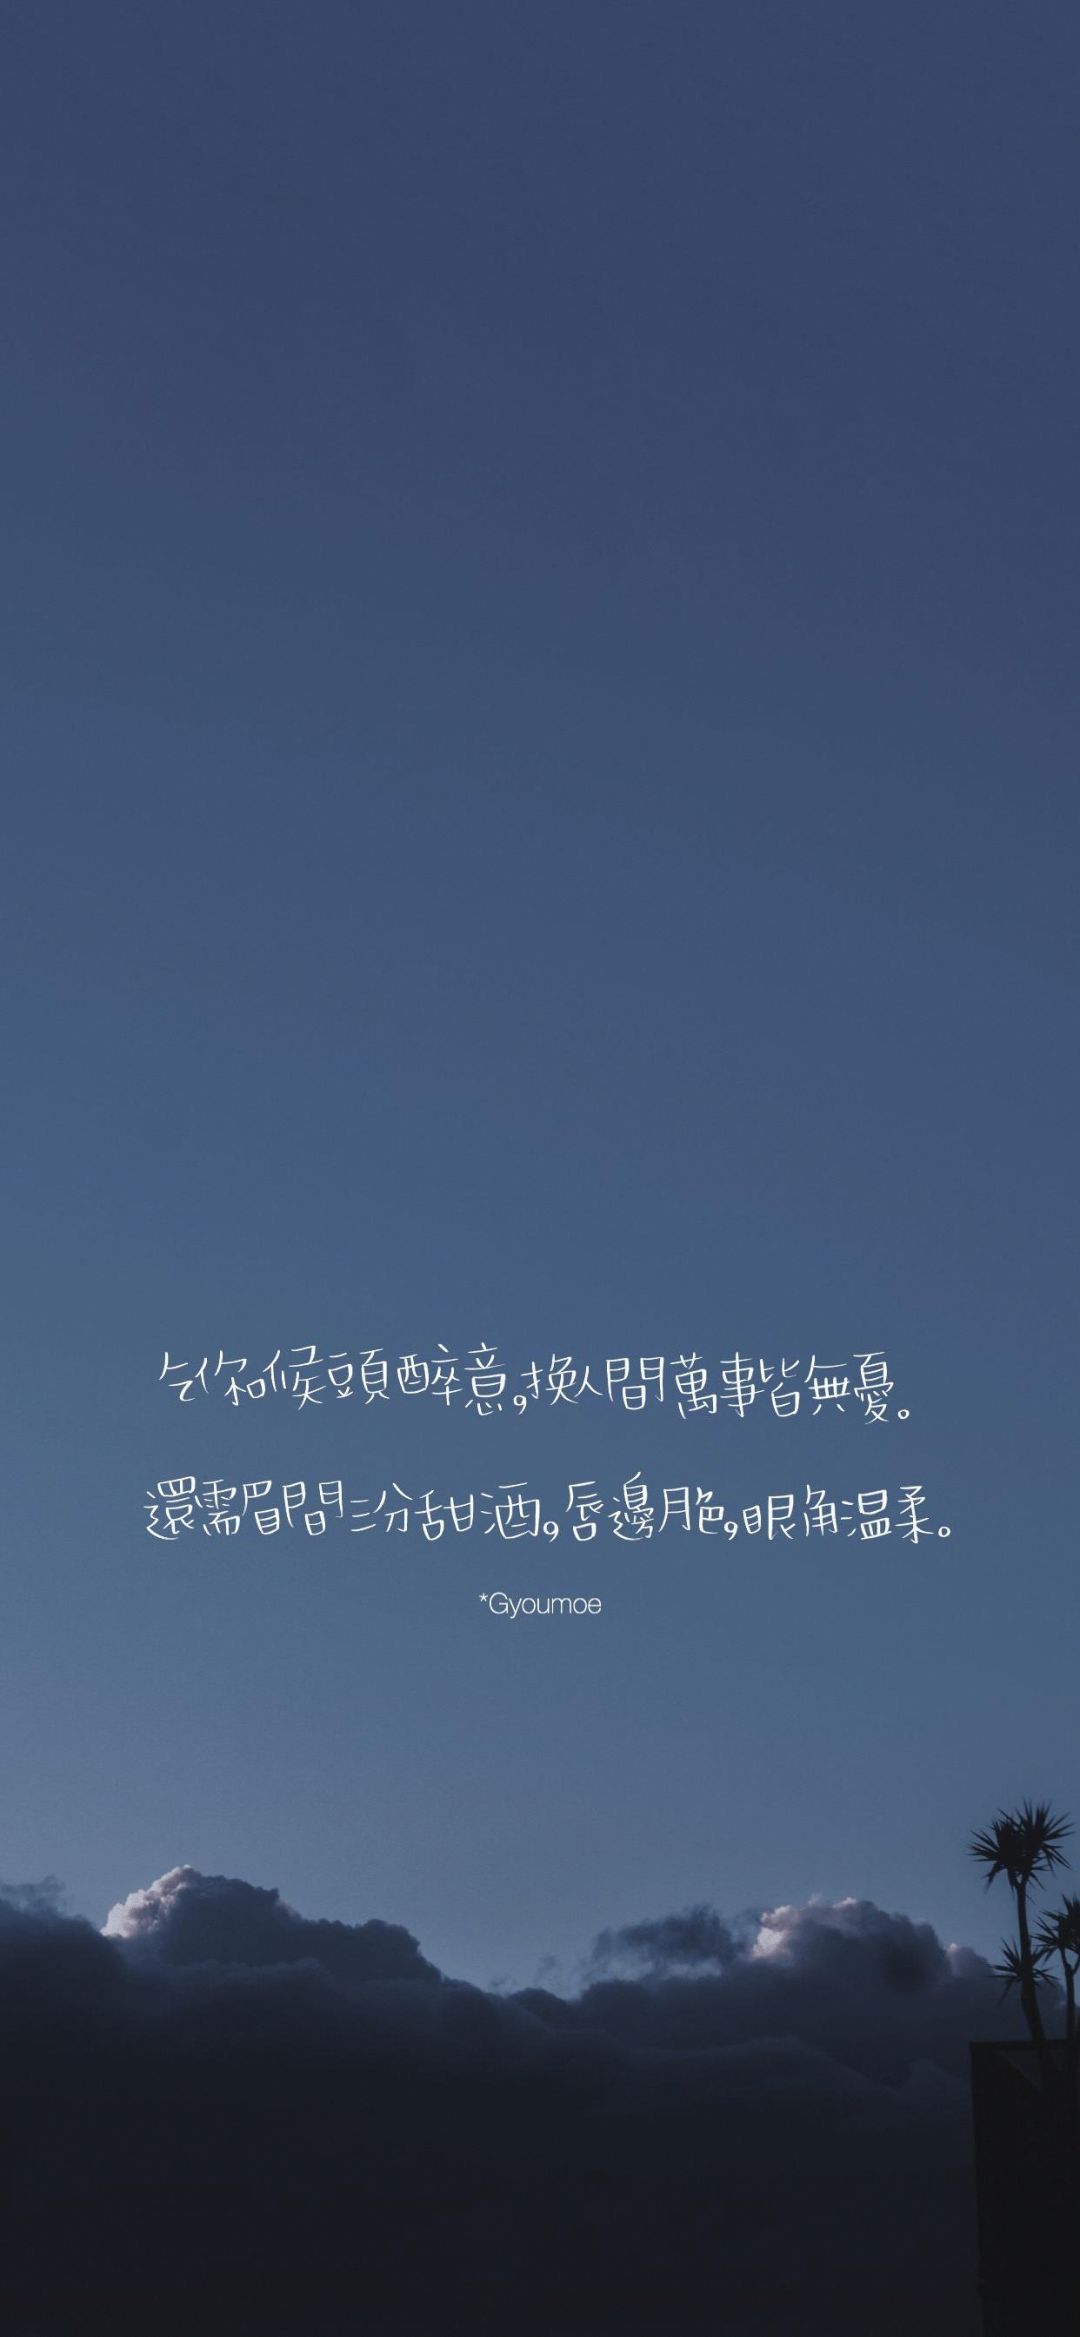 乞你喉頭醉意,换人間萬事皆無憂。
還需眉間三分甜酒,唇邊月色,眼角温柔。
*Gyoumoe